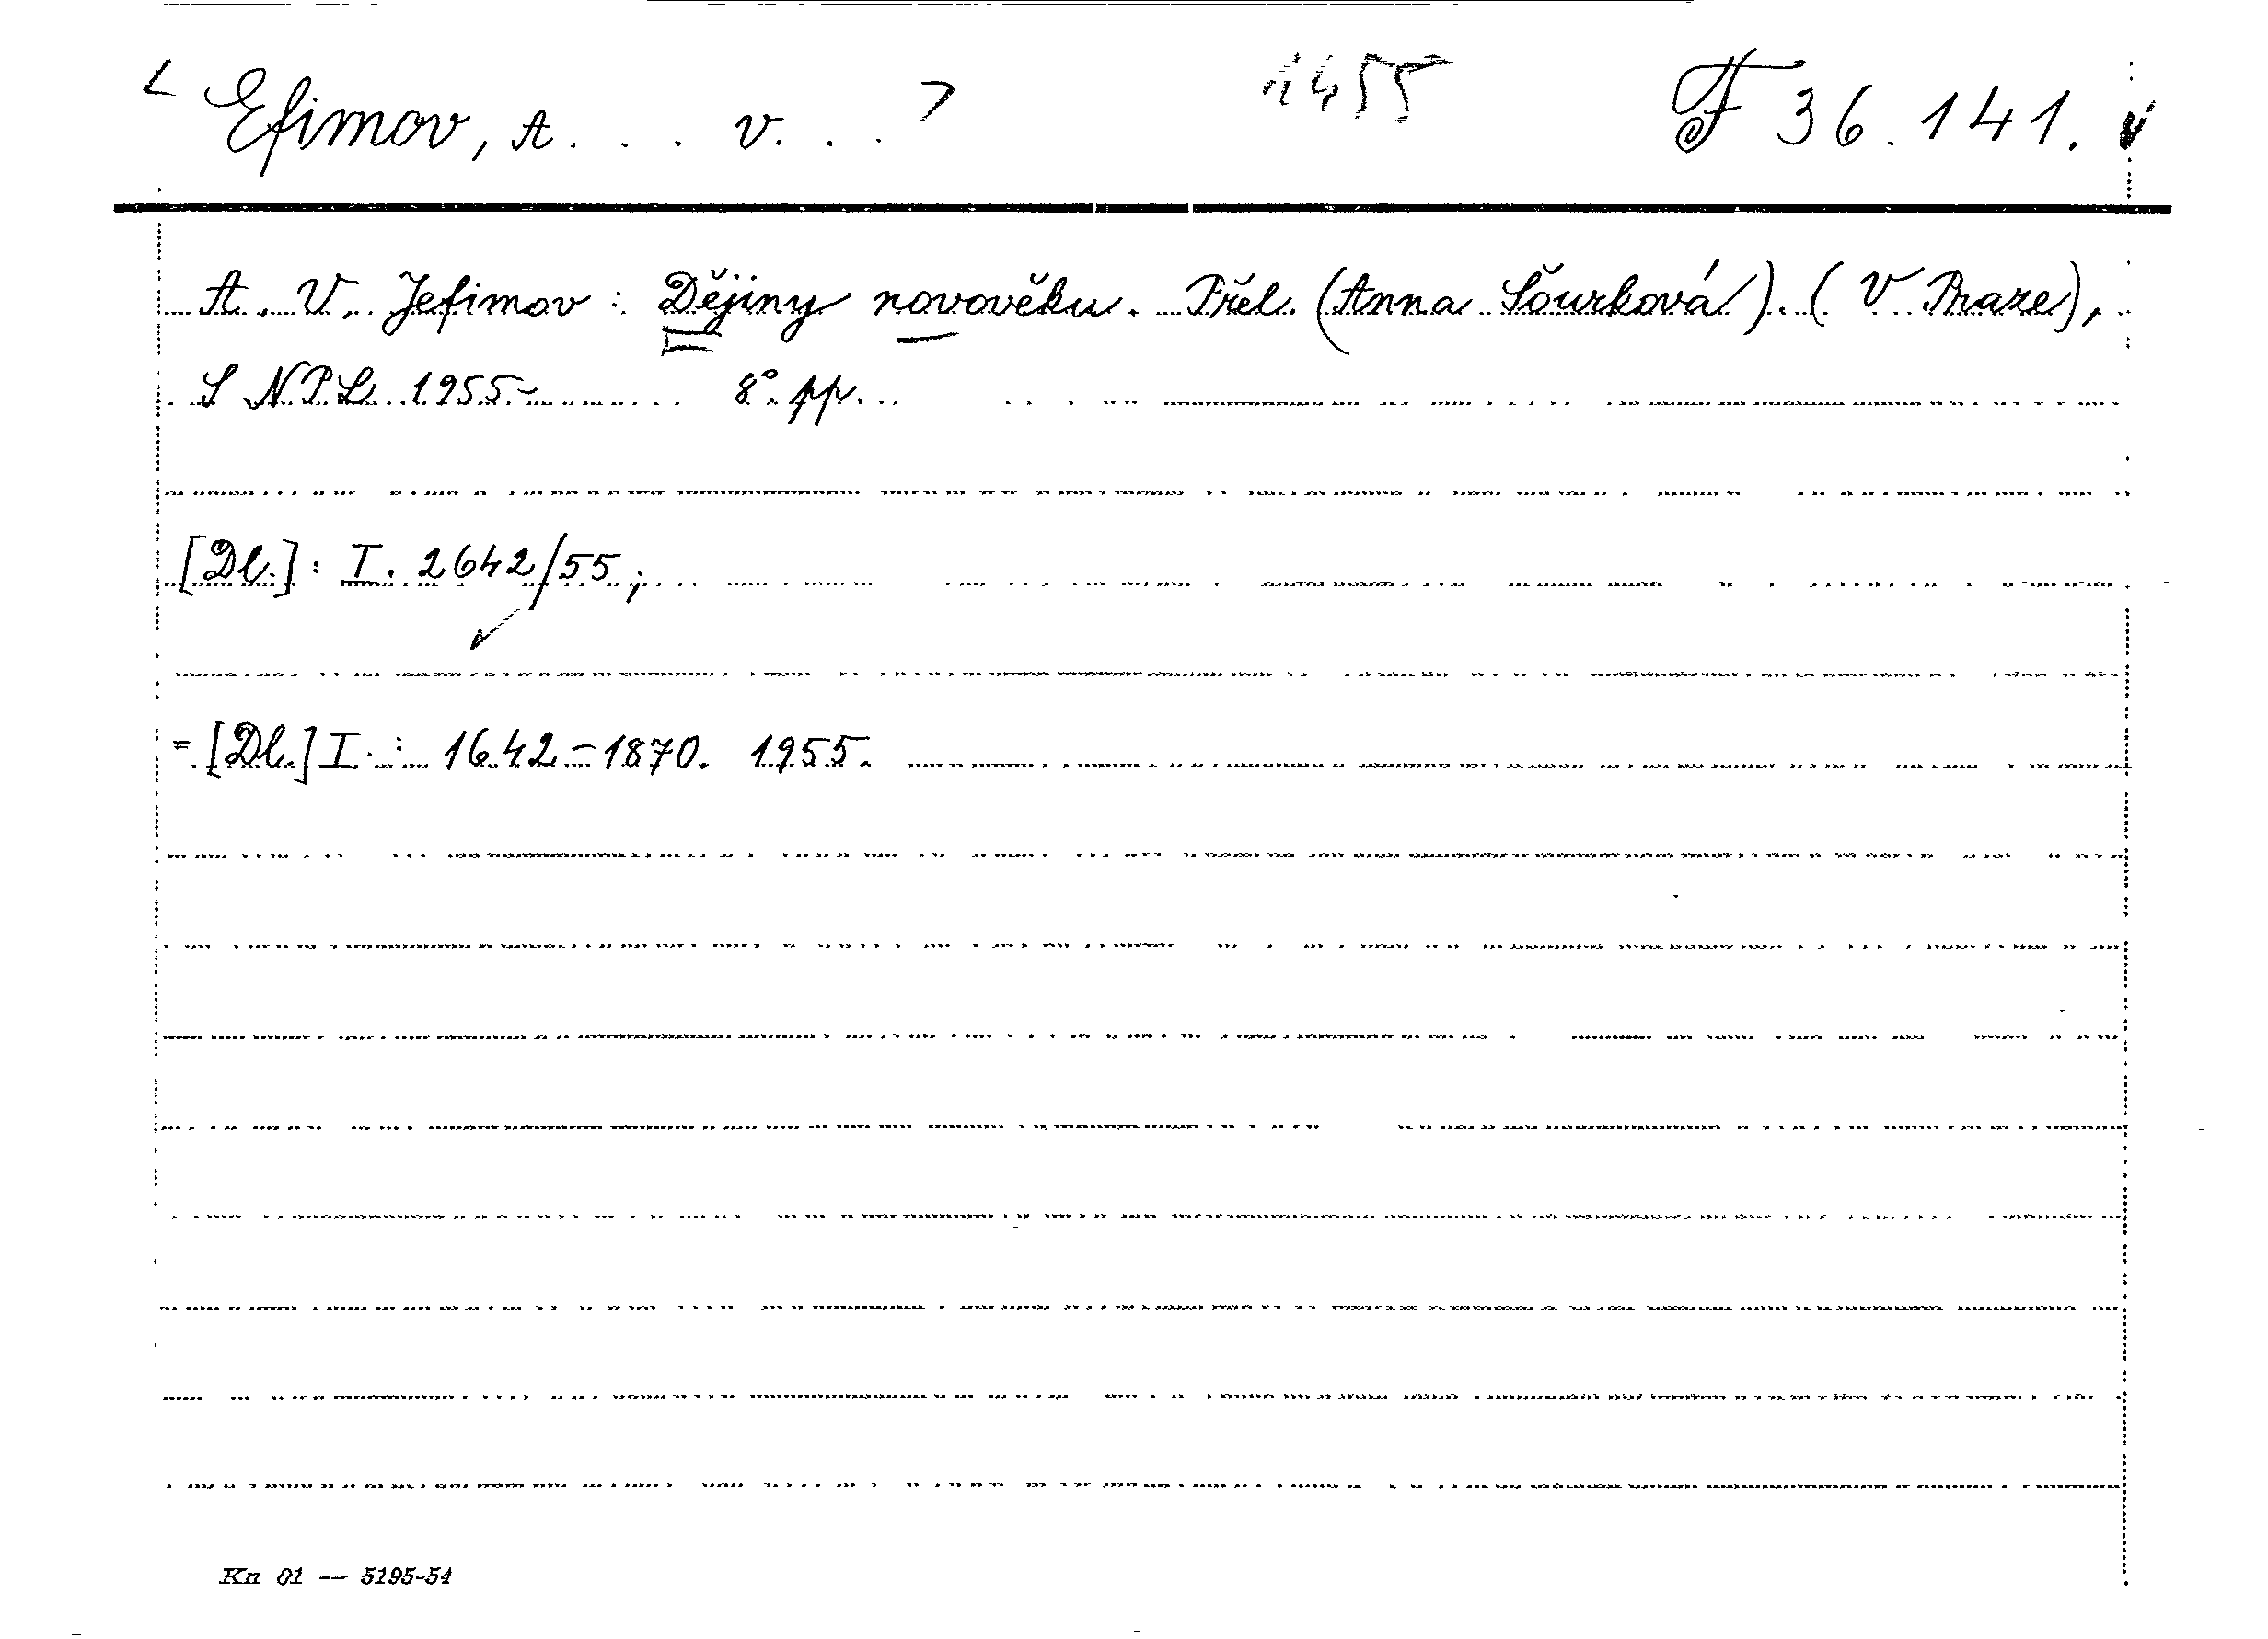 < Efimov, A . . . V. . . > 1455 F 36.141.
A. V. Jefimov : Dějiny novověku. Přel. (Anna Šourková). (V Praze),
SNPL 1955- 8°. pp.
[Dl.] : I. 2642/55;
= [Dl.] I. : 1642-1870. 1955.
Kn 01 — 5195-54